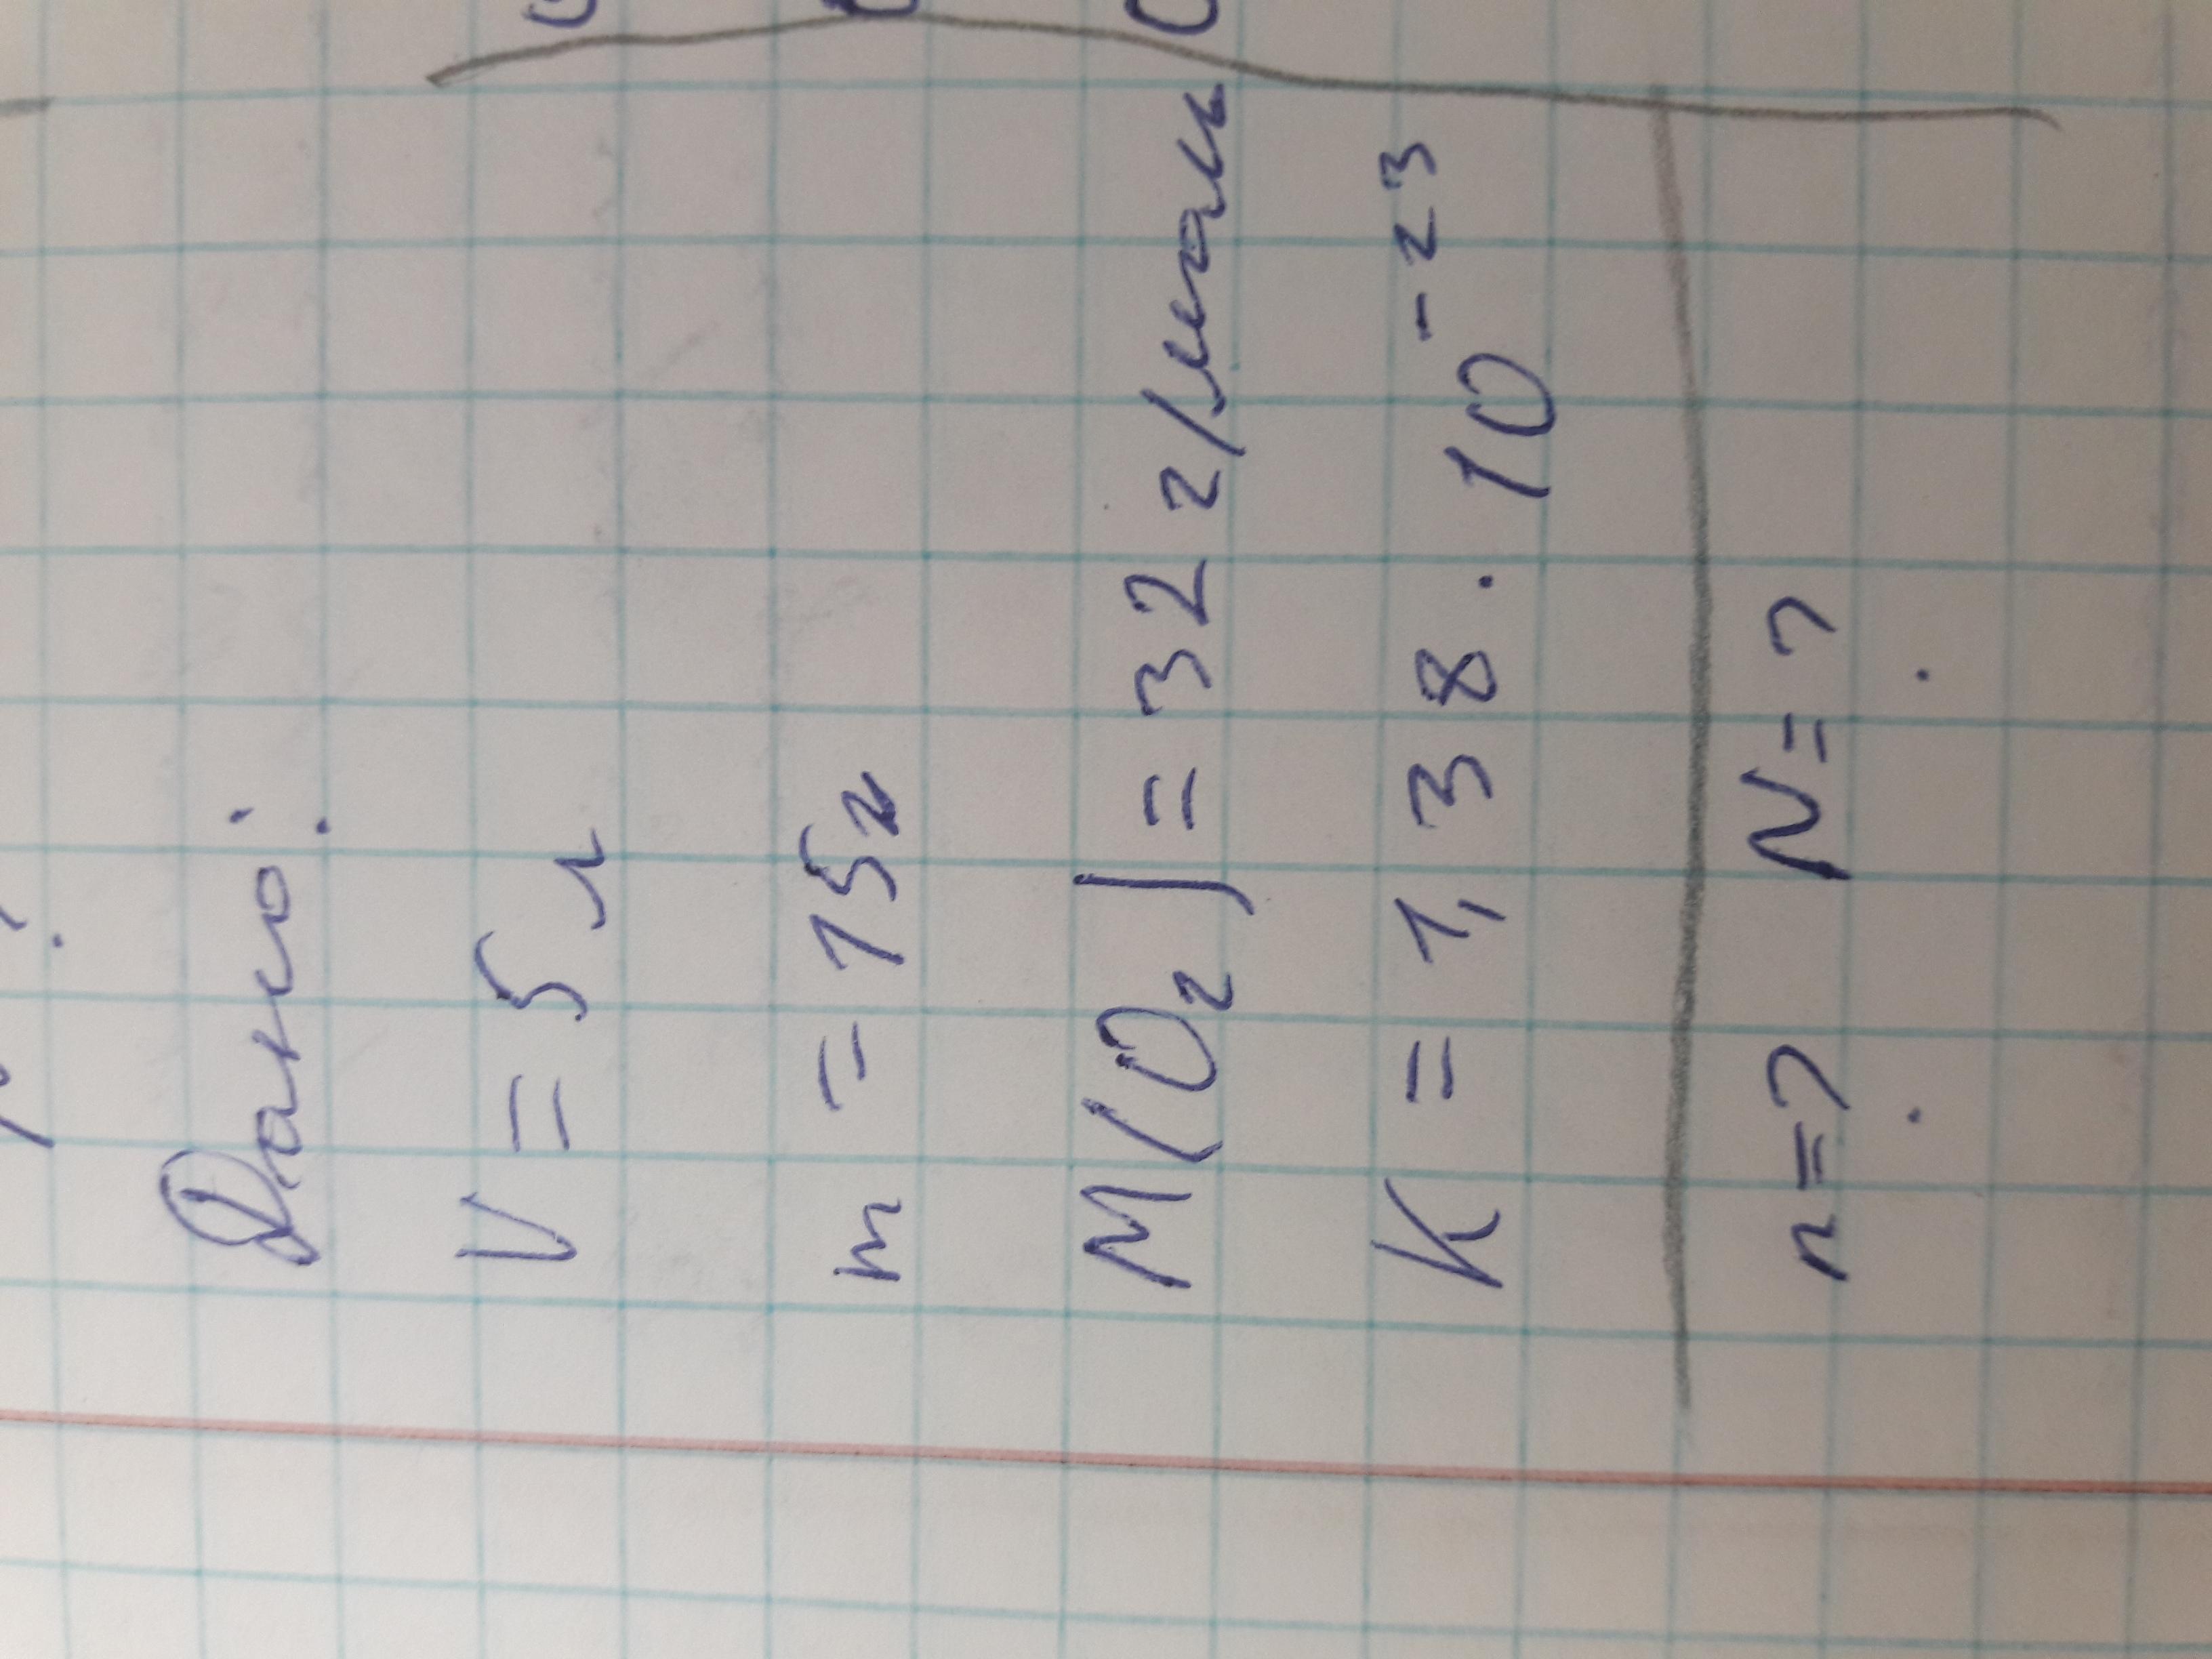 Дано:
V = 5 л
m = 15г
M(O₂) = 32 г/моль
K = 1,38 · 10⁻²³
n=? N=?